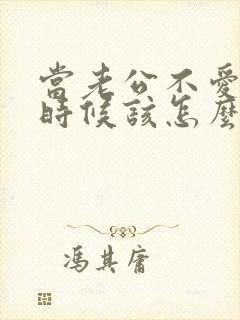 當老公不愛
時候該怎麼
馮其庸